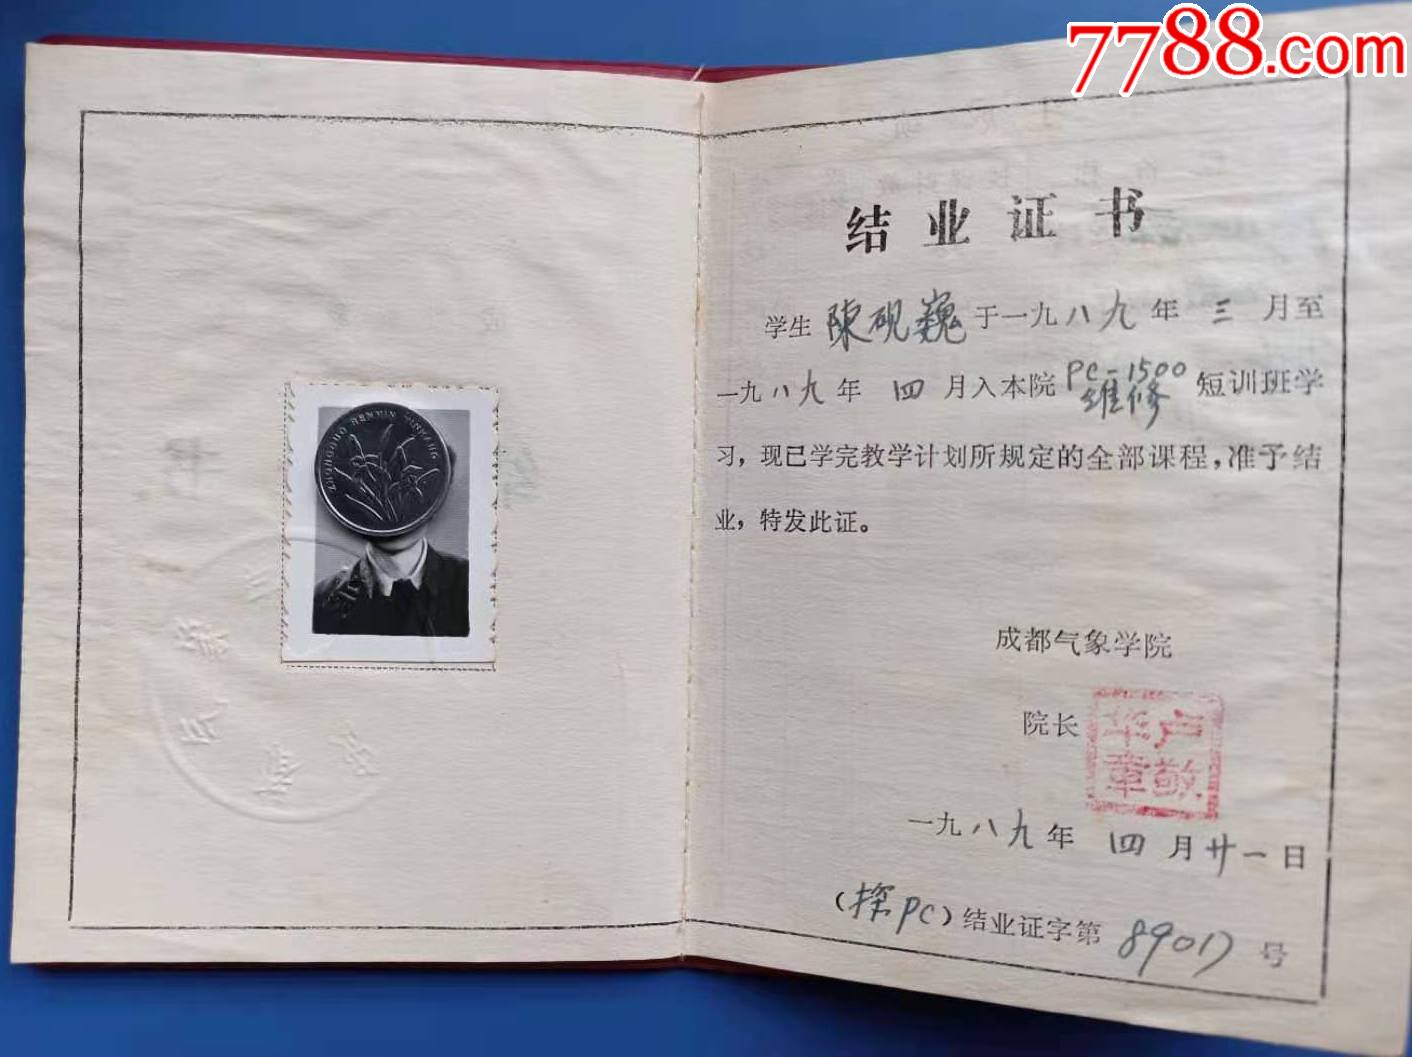 7788.com
ZHONGGUO RENMIN YINHANG
结业证书
学生 陳砚巍 于一九八九年 三 月至
一九八九年 四 月入本院 PC-1500 维修 短训班学
习，现已学完教学计划所规定的全部课程，准予结
业，特发此证。
成都气象学院
院长
卢敬华章
一九八九年 四 月廿一日
（探PC）结业证字第 89017 号